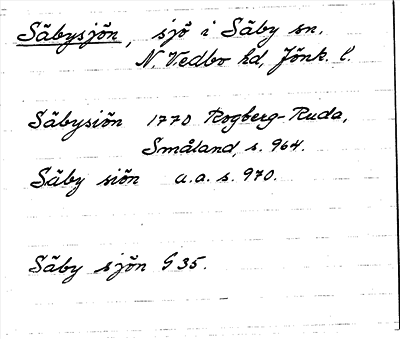 Säbysjön, sjö i Säby sn,
N. Vedbo hd, Jönk. l.
Säbysiön 1770 Rogberg-Ruda,
Småland, s. 964.
Säby siön a.a. s. 970.
Säby sjön G 35.